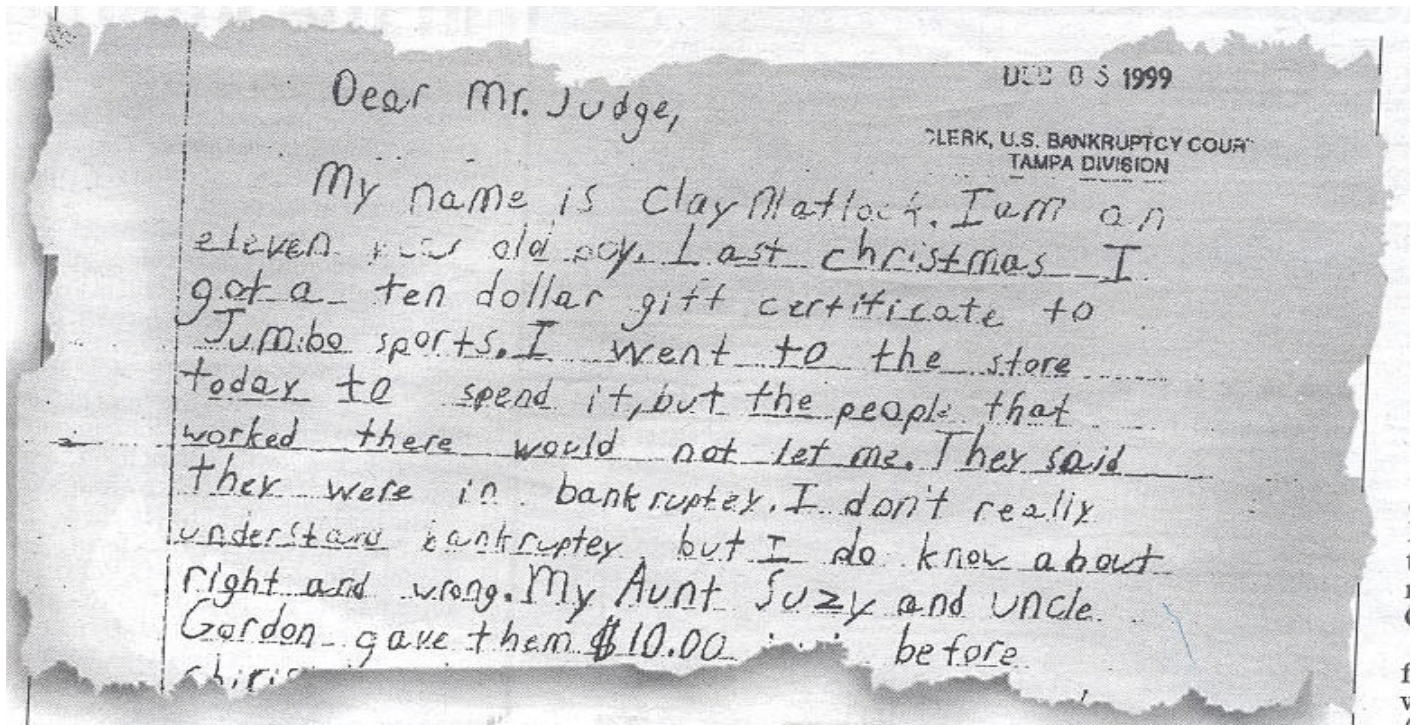 DEC 03 1999
CLERK, U.S. BANKRUPTCY COURT
TAMPA DIVISION
Dear Mr. Judge,
My name is Clay Matlock. I am an
eleven year old boy. Last christmas I
got a ten dollar gift certificate to
Jumbo sports. I went to the store
today to spend it, but the people that
worked there would not let me. They said
they were in bankruptey. I don't really
understand bankruptey, but I do know about
right and wrong. My Aunt Suzy and uncle
Gordon gave them $10.00 before